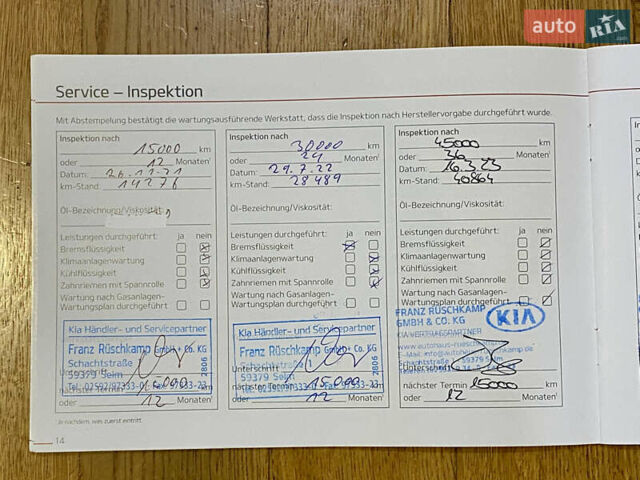 auto RIA
Service – Inspektion
Mit Abstempelung bestätigt die wartungsausführende Werkstatt, dass die Inspektion nach Herstellervorgabe durchgeführt wurde.
Inspektion nach
15000 km
oder 12 Monaten¹
Datum: 26.11.21
km-Stand: 14276
Öl-Bezeichnung/Viskosität:
Leistungen durchgeführt: ja nein
Bremsflüssigkeit
Klimaanlagenwartung
Kühlflüssigkeit
Zahnriemen mit Spannrolle
Wartung nach Gasanlagen-
Wartungsplan durchgeführt
Kia Händler- und Servicepartner
Franz Rüschkamp GmbH + Co. KG
Schachtstraße
59379 Selm
2806
nächster Termin 15.000 km
oder 12 Monaten¹
Inspektion nach
30000 km
oder 24 Monaten¹
Datum: 29.7.22
km-Stand: 28489
Öl-Bezeichnung/Viskosität:
Leistungen durchgeführt: ja nein
Bremsflüssigkeit
Klimaanlagenwartung
Kühlflüssigkeit
Zahnriemen mit Spannrolle
Wartung nach Gasanlagen-
Wartungsplan durchgeführt
Kia Händler- und Servicepartner
Franz Rüschkamp GmbH + Co. KG
Schachtstraße
Unterschrift
59379 Selm
2806
nächster Termin 15.000 km
oder 12 Monaten¹
Inspektion nach
45000 km
oder 36 Monaten¹
Datum: 16.3.23
km-Stand: 40864
Öl-Bezeichnung/Viskosität:
Leistungen durchgeführt: ja nein
Bremsflüssigkeit
Klimaanlagenwartung
Kühlflüssigkeit
Zahnriemen mit Spannrolle
Wartung nach Gasanlagen-
Wartungsplan durchgeführt
FRANZ RÜSCHKAMP
GMBH & CO. KG
KIA
Unterschrift
nächster Termin 15000 km
oder 12 Monaten¹
¹ Je nachdem, was zuerst eintritt
14